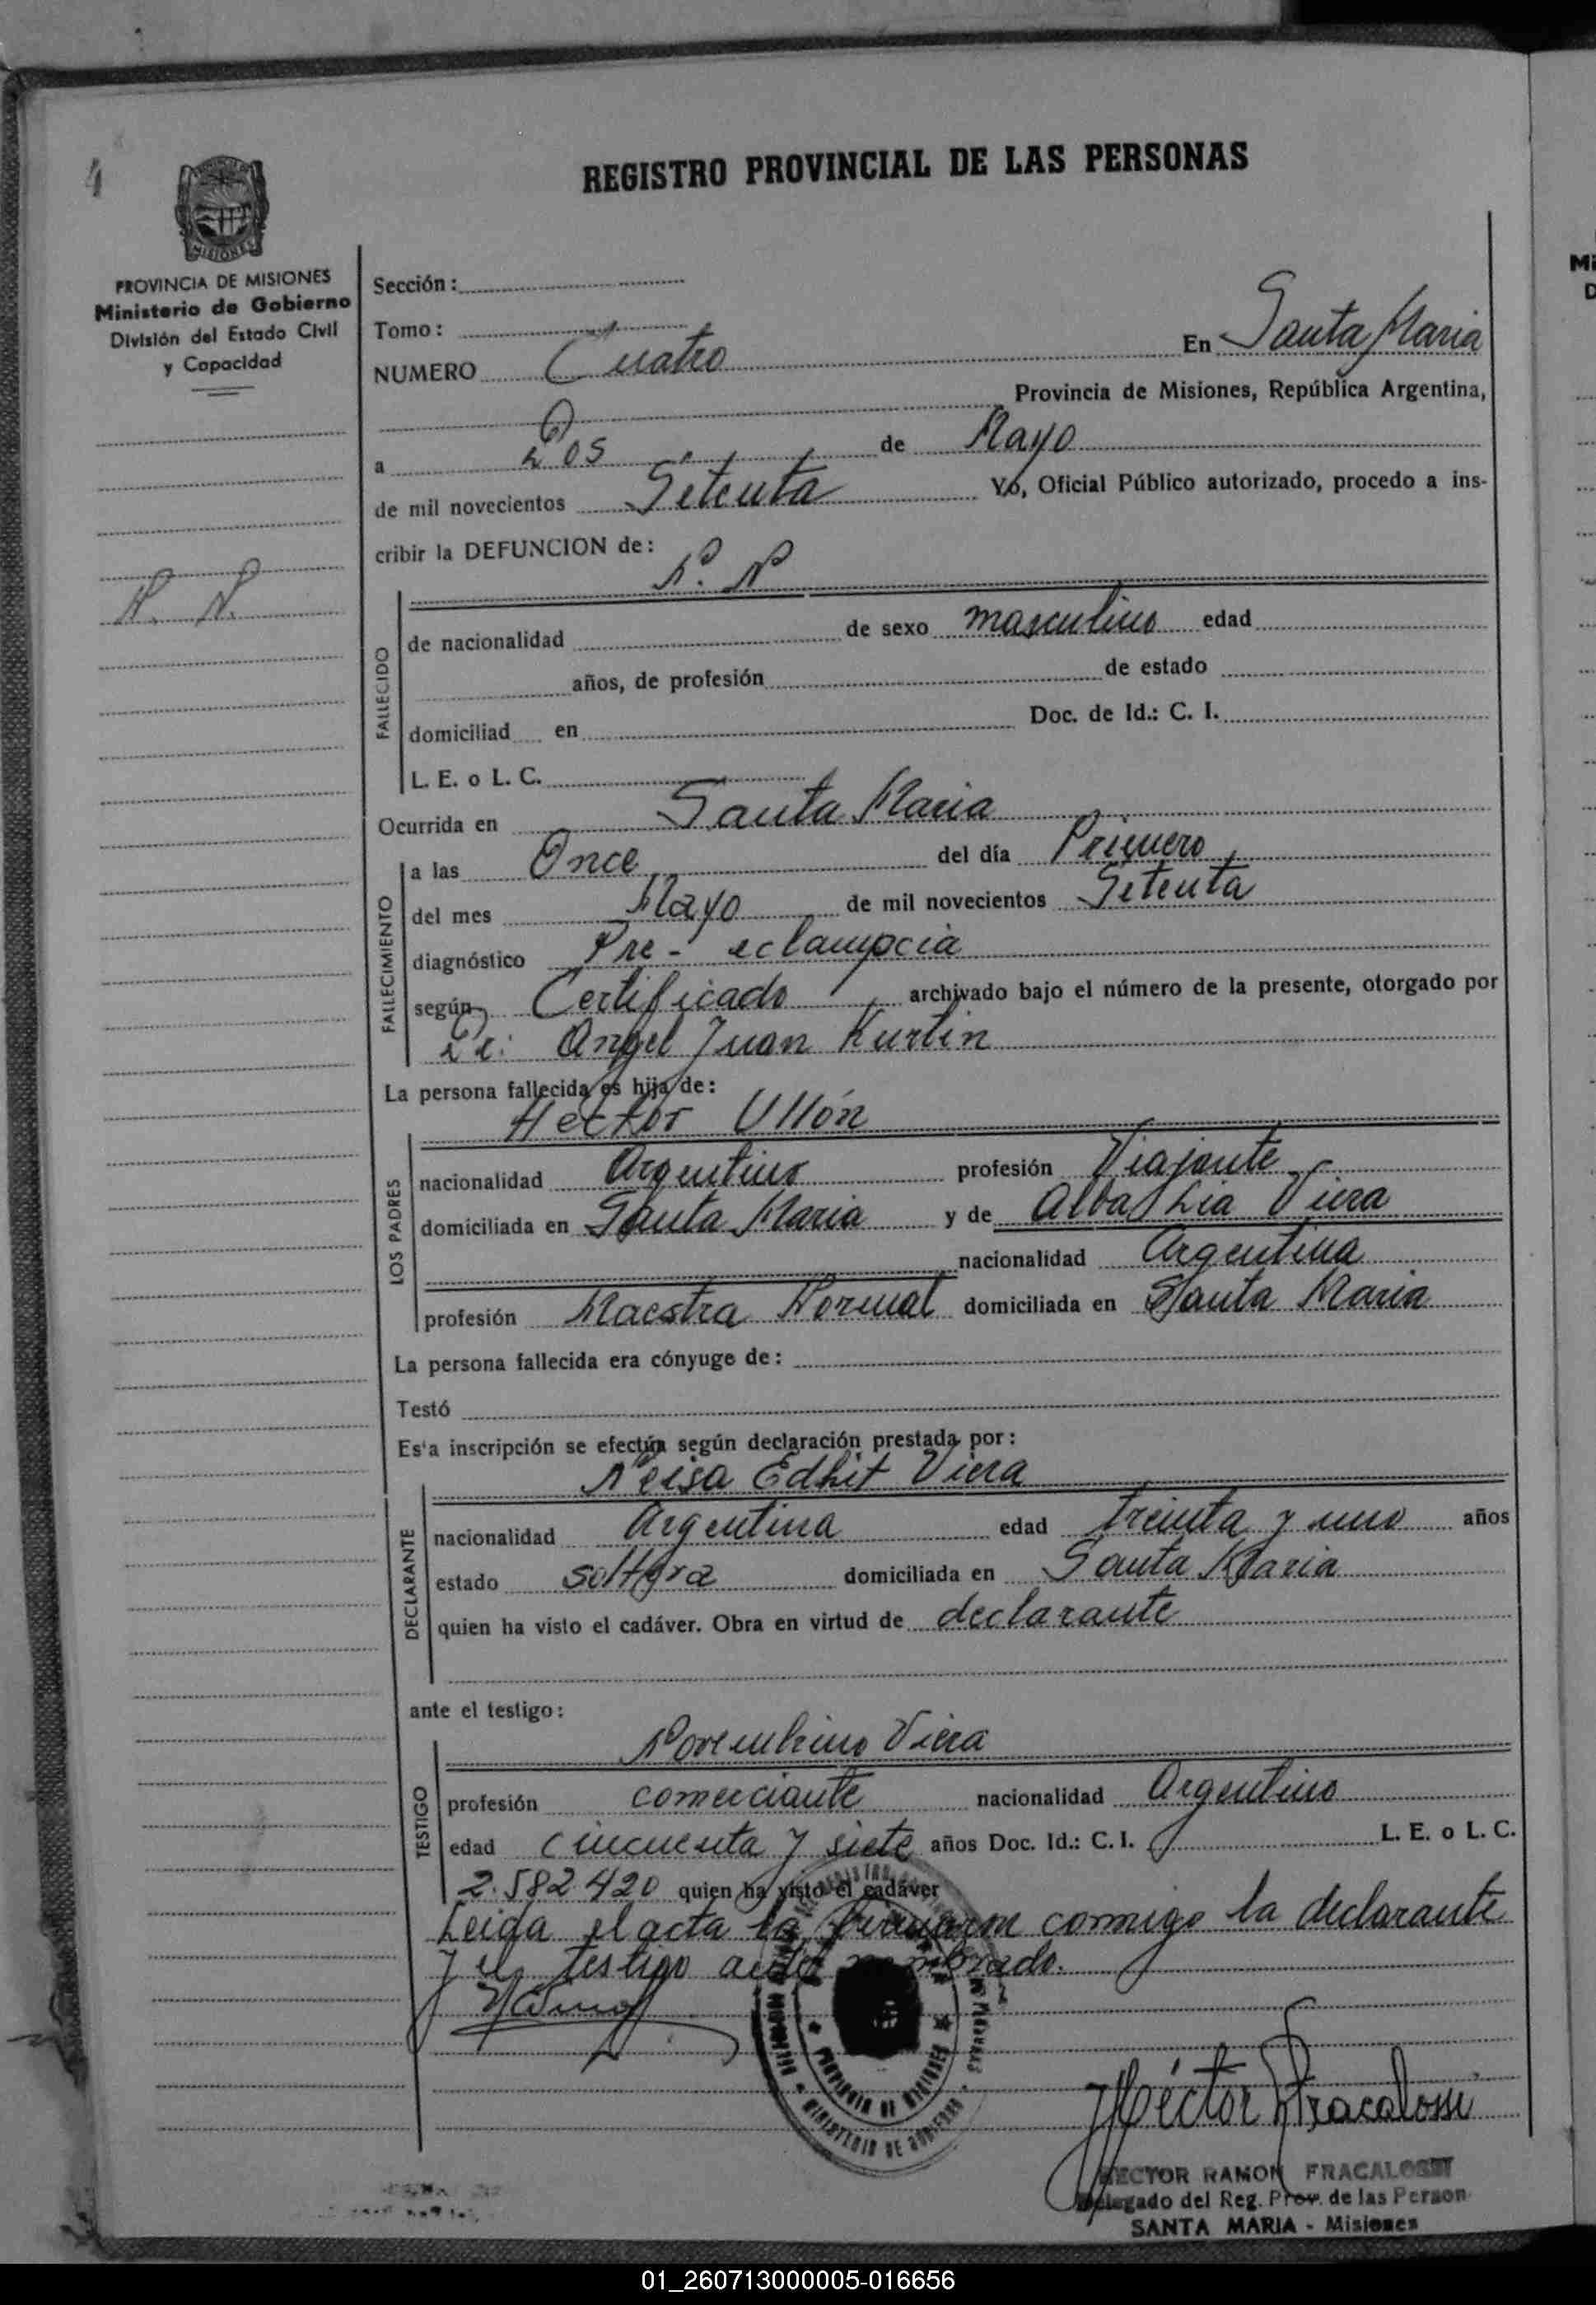 4
REGISTRO PROVINCIAL DE LAS PERSONAS
MISIONES
PROVINCIA DE MISIONES
Ministerio de Gobierno
División del Estado Civil
y Capacidad
N. N.
Sección:
Tomo:
NUMERO Cuatro En Santa Maria
Provincia de Misiones, República Argentina,
a Dos de Mayo
de mil novecientos Setenta Yo, Oficial Público autorizado, procedo a ins-
cribir la DEFUNCION de:
N. N
FALLECIDO
de nacionalidad de sexo masculino edad
años, de profesión de estado
domiciliad en Doc. de Id.: C. I.
L. E. o L. C.
Ocurrida en Santa Maria
FALLECIMIENTO
a las Once del día Primero
del mes Mayo de mil novecientos Setenta
diagnóstico Pre-eclampcia
según Certificado archivado bajo el número de la presente, otorgado por
Dr: Angel Juan Kurtin
La persona fallecida es hija de:
Hector Ullón
LOS PADRES
nacionalidad Argentino profesión Viajante
domiciliada en Santa Maria y de Alba Lia Viera
nacionalidad Argentina
profesión Maestra Normal domiciliada en Santa Maria
La persona fallecida era cónyuge de:
Testó
Es'a inscripción se efectúa según declaración prestada por:
Neisa Edhit Viera
DECLARANTE
nacionalidad Argentina edad treinta y uno años
estado soltera domiciliada en Santa Maria
quien ha visto el cadáver. Obra en virtud de declarante
ante el testigo:
Novembrino Viera
TESTIGO
profesión comerciante nacionalidad Argentino
edad cincuenta y siete años Doc. Id.: C. I. L. E. o L. C.
2.582.420 quien ha visto el cadáver
Leida el acta la firmaron conmigo la declarante
y el testigo antes nombrado.
PROVINCIA DE MISIONES
MINISTERIO DE GOBIERNO
Héctor Fracalossi
HECTOR RAMON FRACALOSSI
Delegado del Reg. Prov. de las Person
SANTA MARIA - Misiones
01_260713000005-016656